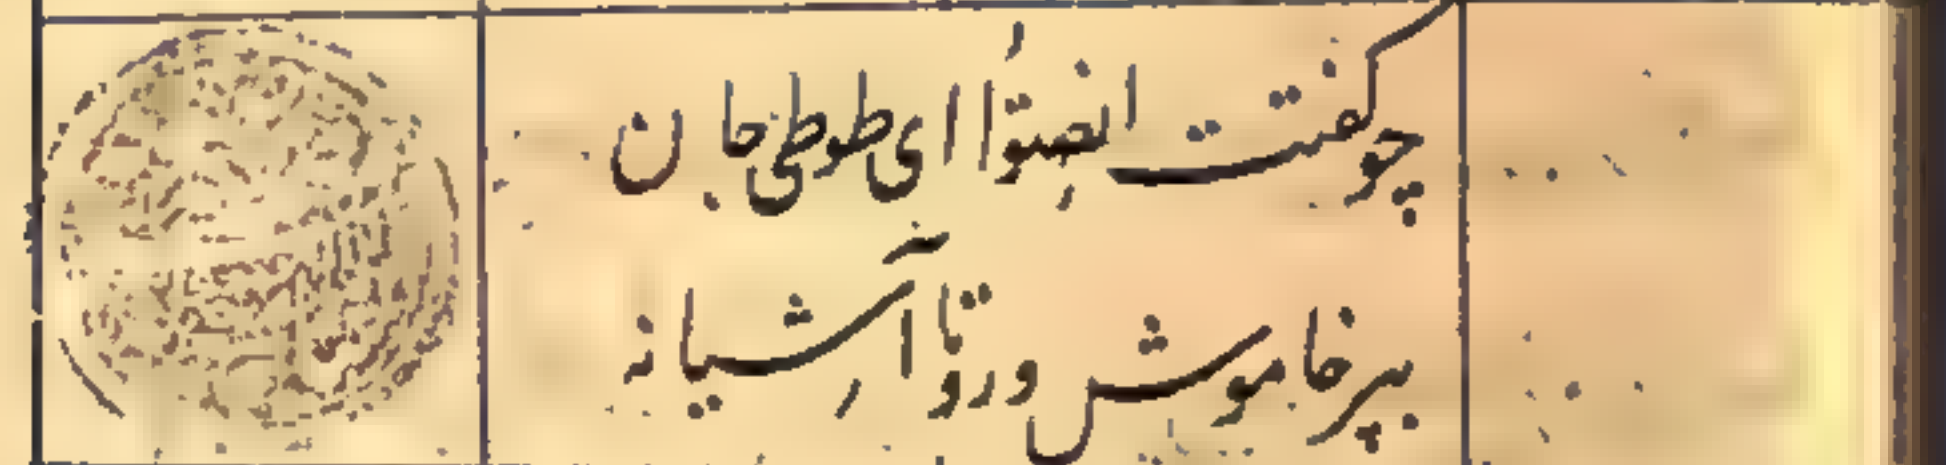 چو گفت انصتوا ای طوطی جان
بپر خاموش ورو تا آشیانه